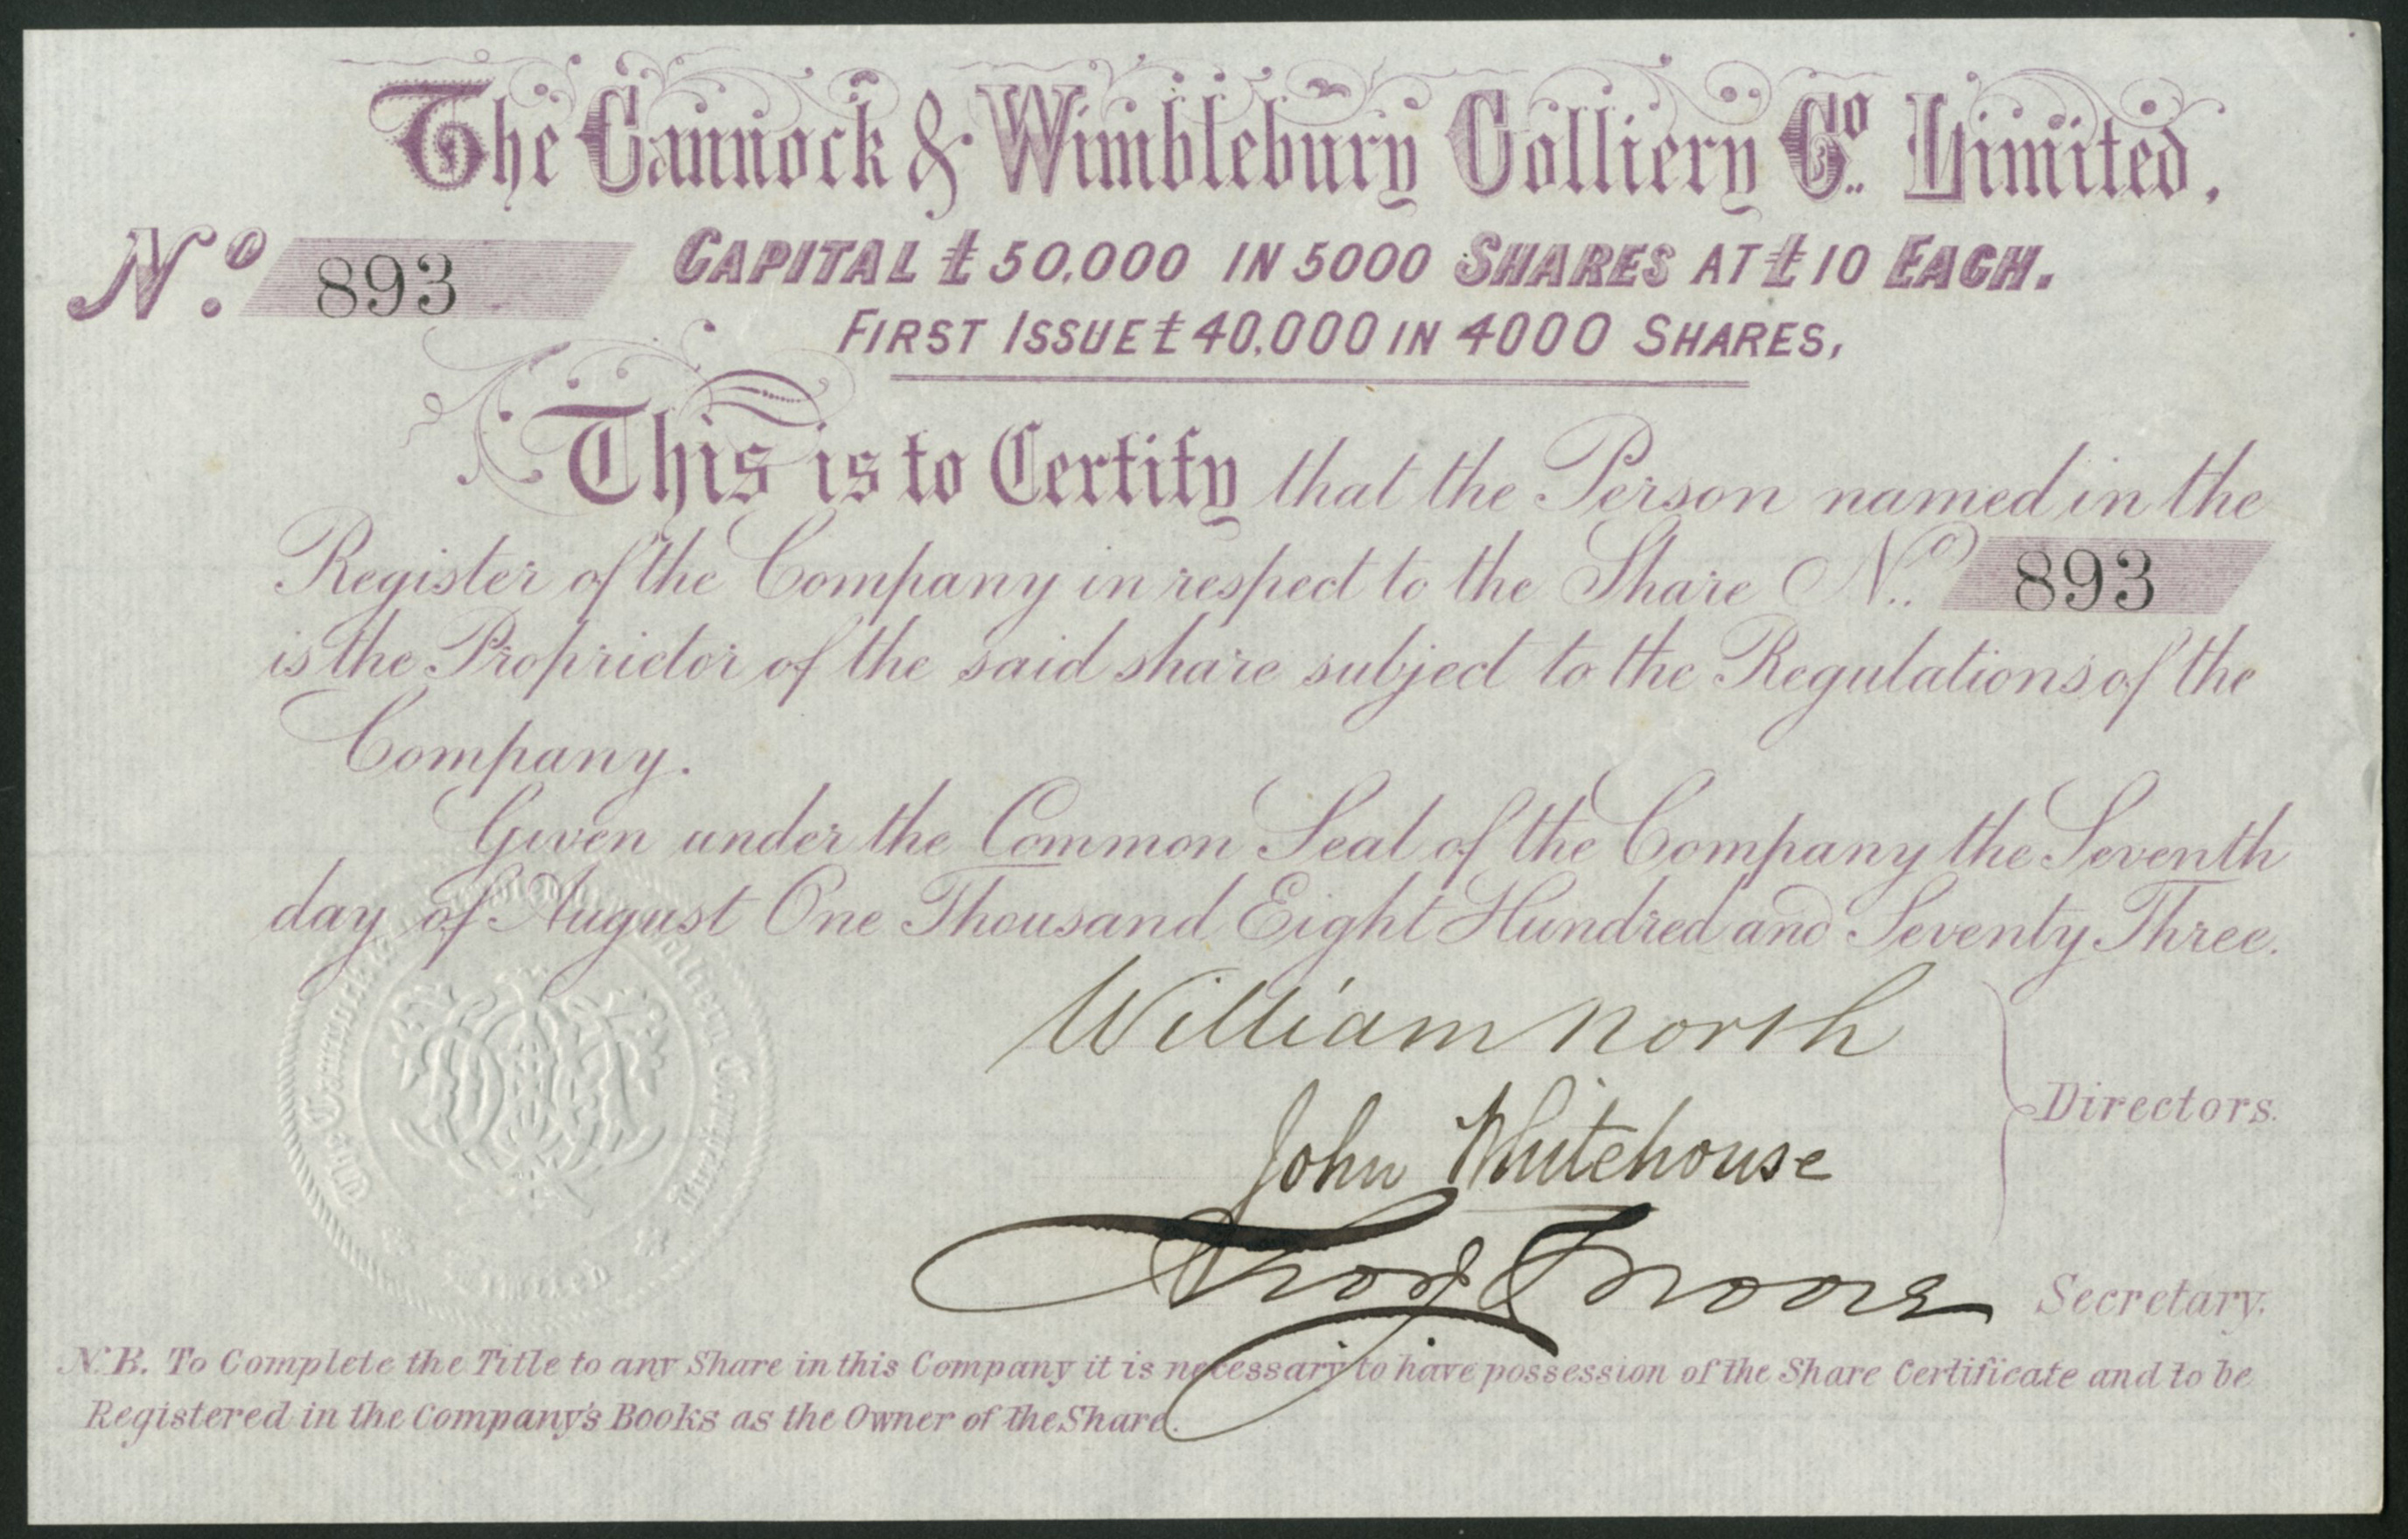 The Cannock & Wimblebury Colliery Co. Limited.
No. 893
CAPITAL £50,000 IN 5000 SHARES AT £10 EACH.
FIRST ISSUE £40,000 IN 4000 SHARES,
This is to Certify that the Person named in the
Register of the Company in respect to the Share No. 893
is the Proprietor of the said share subject to the Regulations of the
Company.
Given under the Common Seal of the Company the Seventh
day of August One Thousand Eight Hundred and Seventy Three.
William North
John Whitehouse
Directors.
Moore Secretary.
N.B. To Complete the Title to any Share in this Company it is necessary to have possession of the Share Certificate and to be
Registered in the Company's Books as the Owner of the Share.
The Cannock & Wimblebury Colliery Company
Limited